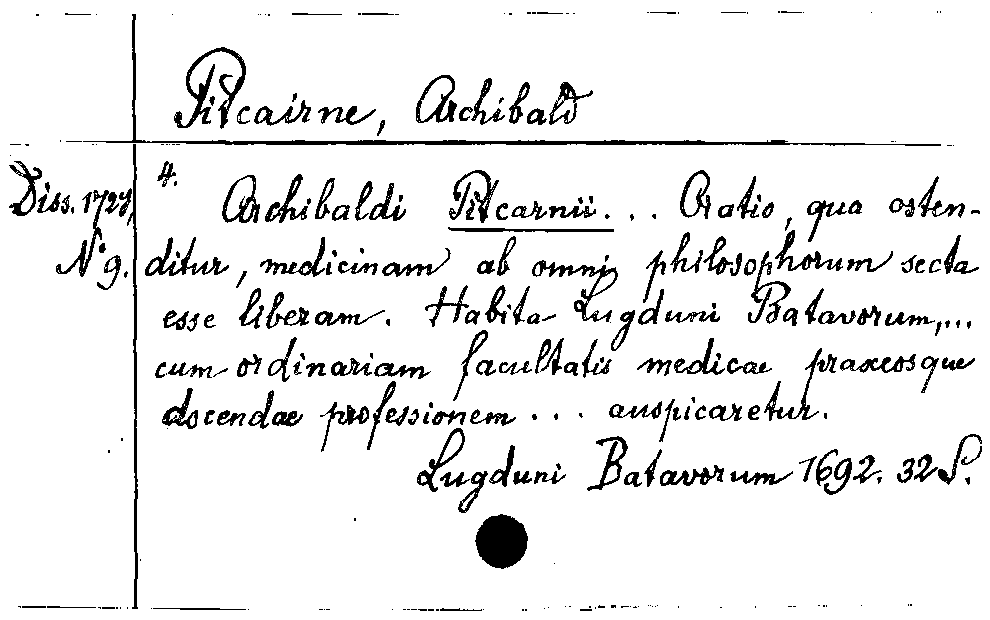 Pitcairne, Archibald
4.
Diss. 1727, Archibaldi Pitcarnii... Oratio, qua osten-
N° 9. ditur, medicinam ab omni philosophorum secta
esse liberam. Habita Lugduni Batavorum,...
cum ordinariam facultatis medicae praxeosque
docendae professionem ... auspicaretur.
Lugduni Batavorum 1692. 32 S.